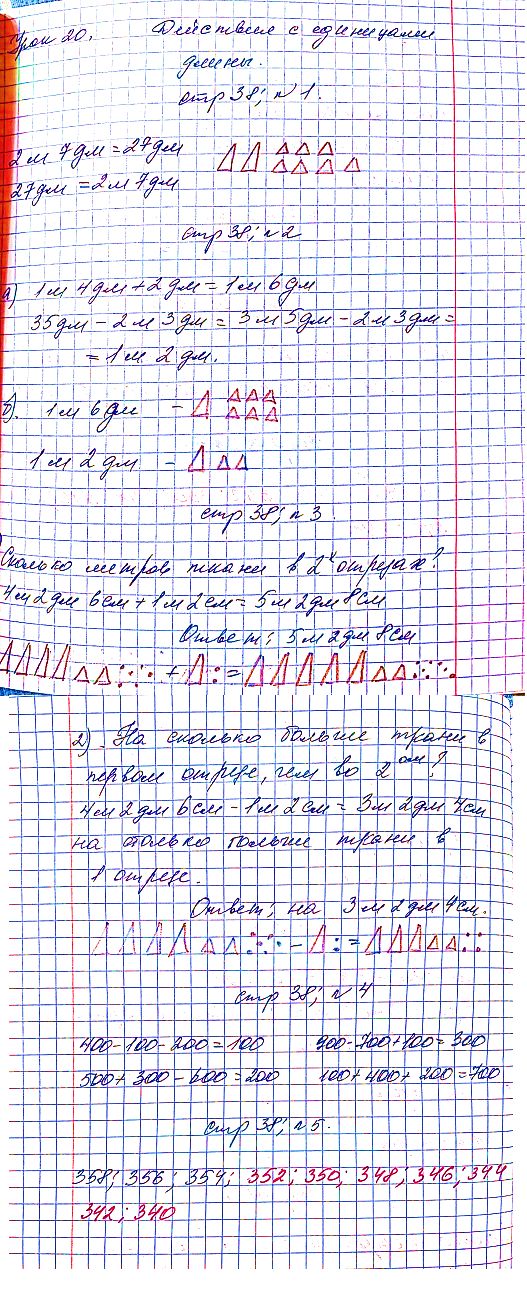 Урок 20. Действия с единицами
длины.
стр 38; №1.
2м 7дм = 27дм
27дм = 2м 7дм
стр 38; №2
а) 1м 4дм + 2дм = 1м 6дм
35дм - 2м 3дм = 3м 5дм - 2м 3дм =
= 1м 2дм.
б). 1м 6дм -
1м 2дм -
стр 38; №3
Сколько метров ткани в 2х отрезах?
4м 2дм 6см + 1м 2см = 5м 2дм 8см
Ответ: 5м 2дм 8см
+ =
2). На сколько больше ткани в
первом отрезе, чем во 2ом?
4м 2дм 6см - 1м 2см = 3м 2дм 4см
на столько больше ткани в
1 отрезе.
Ответ: на 3м 2дм 4см.
- =
стр 38; №4
400-100-200=100 900-700+100=300
500+300-600=200 100+400+200=700
стр 38; №5.
358; 356; 354; 352; 350; 348; 346; 344
342; 340